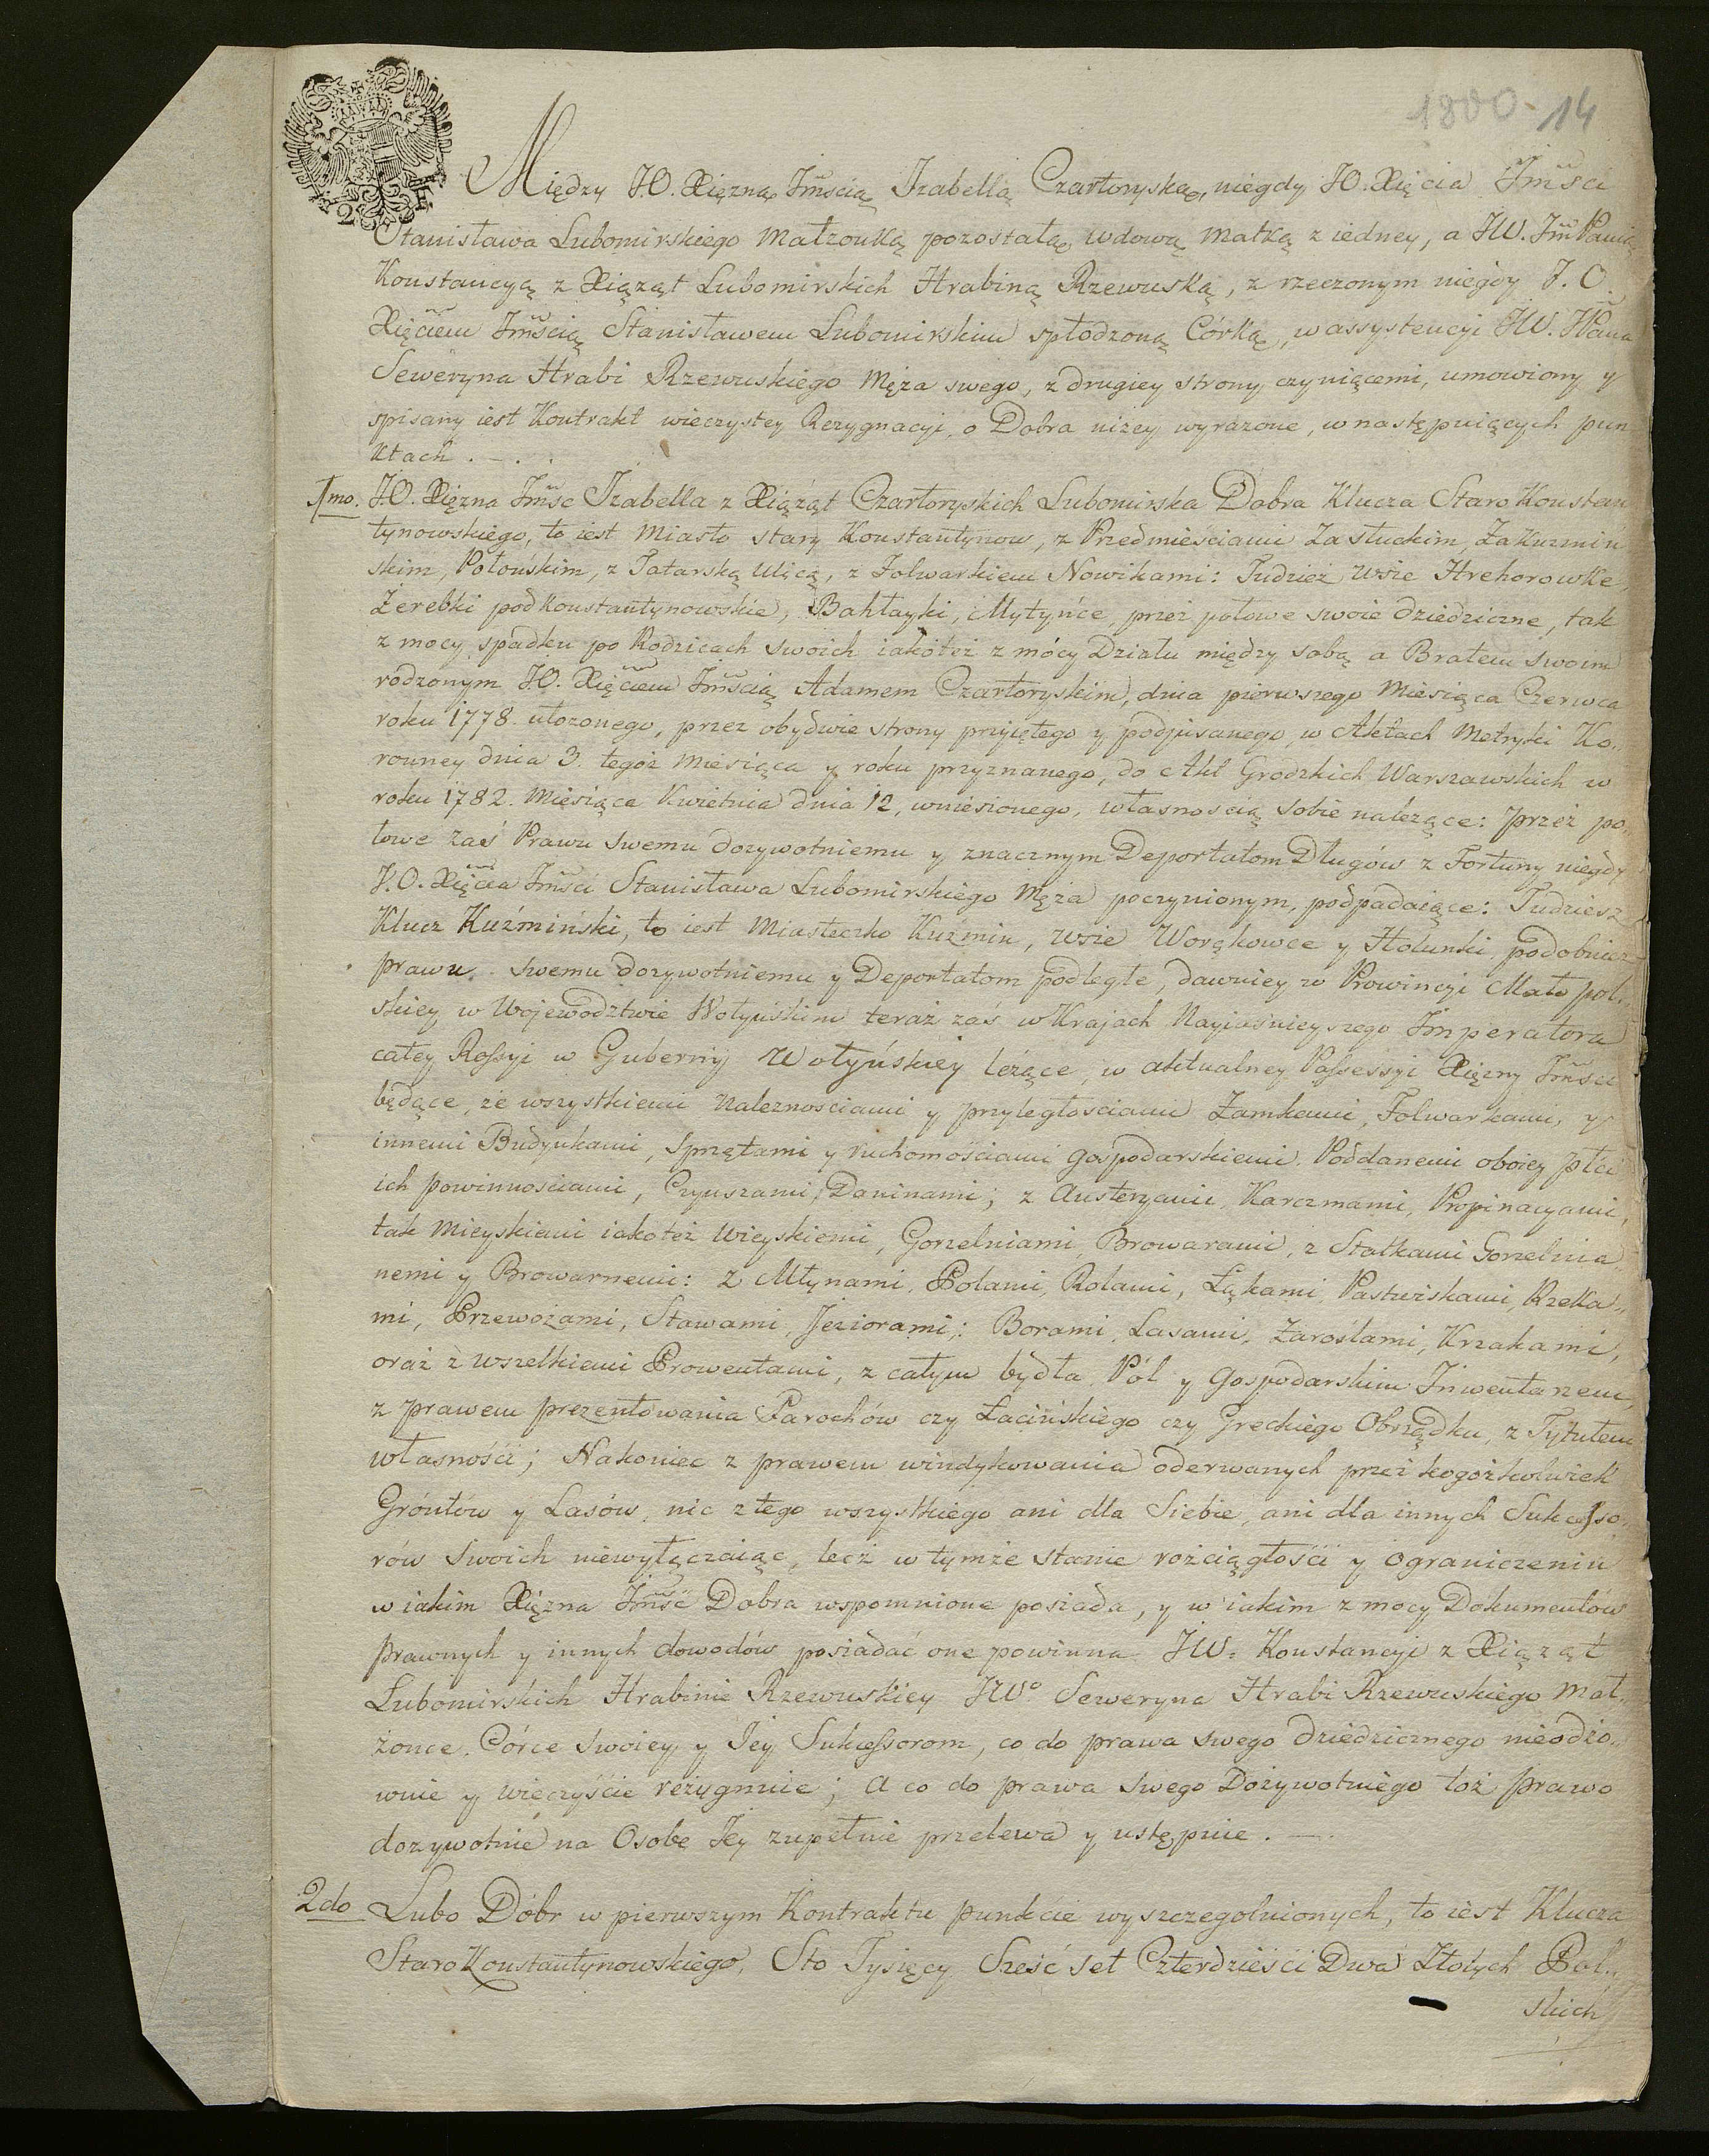 1800-14
Między J.O. Xiężną Jmścią Izabellą Czartoryską, niegdy J.O. Xięcia Jmści
Stanisława Lubomirskiego Małżonką pozostałą wdową Matką z iedney, a JW. Jm Panią
Konstancyą z Xiążąt Lubomirskich Hrabiną Rzewuską, z rzeczonym niegdy J.O.
Xięciem Jmścią Stanisławem Lubomirskim spłodzoną Córką, w assystencyi JW. JPana
Seweryna Hrabi Rzewuskiego Męża swego, z drugiey strony czyniącemi, umowiony y
spisany iest Kontrakt wieczystey Rezygnacyi, o Dobra niżey wyrażone, w następuiących pun
ktach . — . .
1mo. J.O. Xiężna Jmśc Izabella z Xiążąt Czartoryskich Lubomirska Dobra Klucza Staro Konstan
tynowskiego, to iest Miasto stary Konstantynow, z Przedmieściami Zasłuckim, Zakuzmiń
skim, Połońskim, z Tatarską Ulicą, z Folwarkiem Nowikami: Tudzież wsie Hrehorowke,
Żerebki pod Konstantynowskie, Bahłayki, Mytyńce, przez połowe swoie dziedziczne, tak
z mocy spadku po Rodzicach swoich iakoteż z mócy Działu między sobą a Bratem swoim
rodzonym J.O. Xięciem Jmścią Adamem Czartoryskim, dnia pierwszego Miesiąca Czerwca
roku 1778. ułożonego, przez obydwie strony przyiętego y podpisanego, w Aktach Metryki Ko„
ronney dnia 3. tegoż Miesiąca y roku przyznanego, do Akt Grodzkich Warszawskich w
roku 1782. Miesiąca Kwietnia dnia 12, wniesionego, własnoscią sobie należące: przez po„
łowe zaś Prawu swemu dożywotniemu y znacznym Deportatom Długów z Fortuny niegdy
J.O. Xięcia Jmści Stanisława Lubomirskiego Męża poczynionym, podpadaiące: Tudziesz
Klucz Kuźmiński, to iest Miasteczko Kuźmin, wsie Worąkowce y Hołunki podobnież
prawu swemu dożywotniemu y Deportatom podległe, dawniey w Prowincyi Mało pol„
skiey w Województwie Wołyńskim teraz zaś w Krajach Nayiaśnieyszego Imperatora
całey Rossyi w Gubernij Wołyńskiey leżące, w aktualney Possessyi Xiężny Jmści
będące, ze wszystkiemi należnościami y przyległościami Zamkami, Folwarkami, y
innemi Budynkami, sprzętami y ruchomościami gospodarskiemi. Poddanemi oboiey płci
ich powinnościami, Czynszami, Daninami; z Austeryami, Karczmami, Propinacyami,
tak Mieyskiemi iakoteż Wieyskiemi, Gorzelniami, Browarami, z Statkami Gorzelnia
nemi y Browarnemi: z Młynami, Polami, Rolami, Łąkami, Pastwiskami, Rzeka„
mi, Przewozami, Stawami, Jeziorami: Borami, Lasami, Zaroślami, Krzakami,
oraz z wszelkiemi Prowentami, z całym bydła, Pól y Gospodarskim Inwentarzem,
z prawem prezentowania Parochów czy Łacińskiego czy Greckiego Obrządku, z Tytułem
własności; Nakoniec z prawem windykowania oderwanych przez kogożkolwiek
Gróntów y Lasów, nic z tego wszystkiego ani dla Siebie, ani dla innych Sukcesso„
rów swoich niewyłączaiąc, lecz w tymże stanie rozciągłości y ograniczeniu
w iakim Xiężna Jmść Dobra wspomnione posiada, y w iakim z mocy Dokumentów
prawnych y innych dowodów posiadać one powinna JW. Konstancyi z Xiążąt
Lubomirskich Hrabinie Rzewuskiey JWo Seweryna Hrabi Rzewuskiego Mał„
żonce. Córce swoiey y Jey Sukcessorom, co do prawa swego dziedzicznego nieodzo„
wnie y wieczyście rezygnuie; a co do prawa swego Dożywotniego toż prawo
dożywotnie na Osobę Jey zupełnie przelewa y ustępuie . —.
2do Lubo Dóbr w pierwszym Kontraktu punkcie wyszczegolnionych, to iest Klucza
Staro Konstantynowskiego, Sto Tysięcy Sześć set Czterdzieści Dwa Złotych Pol„
skich